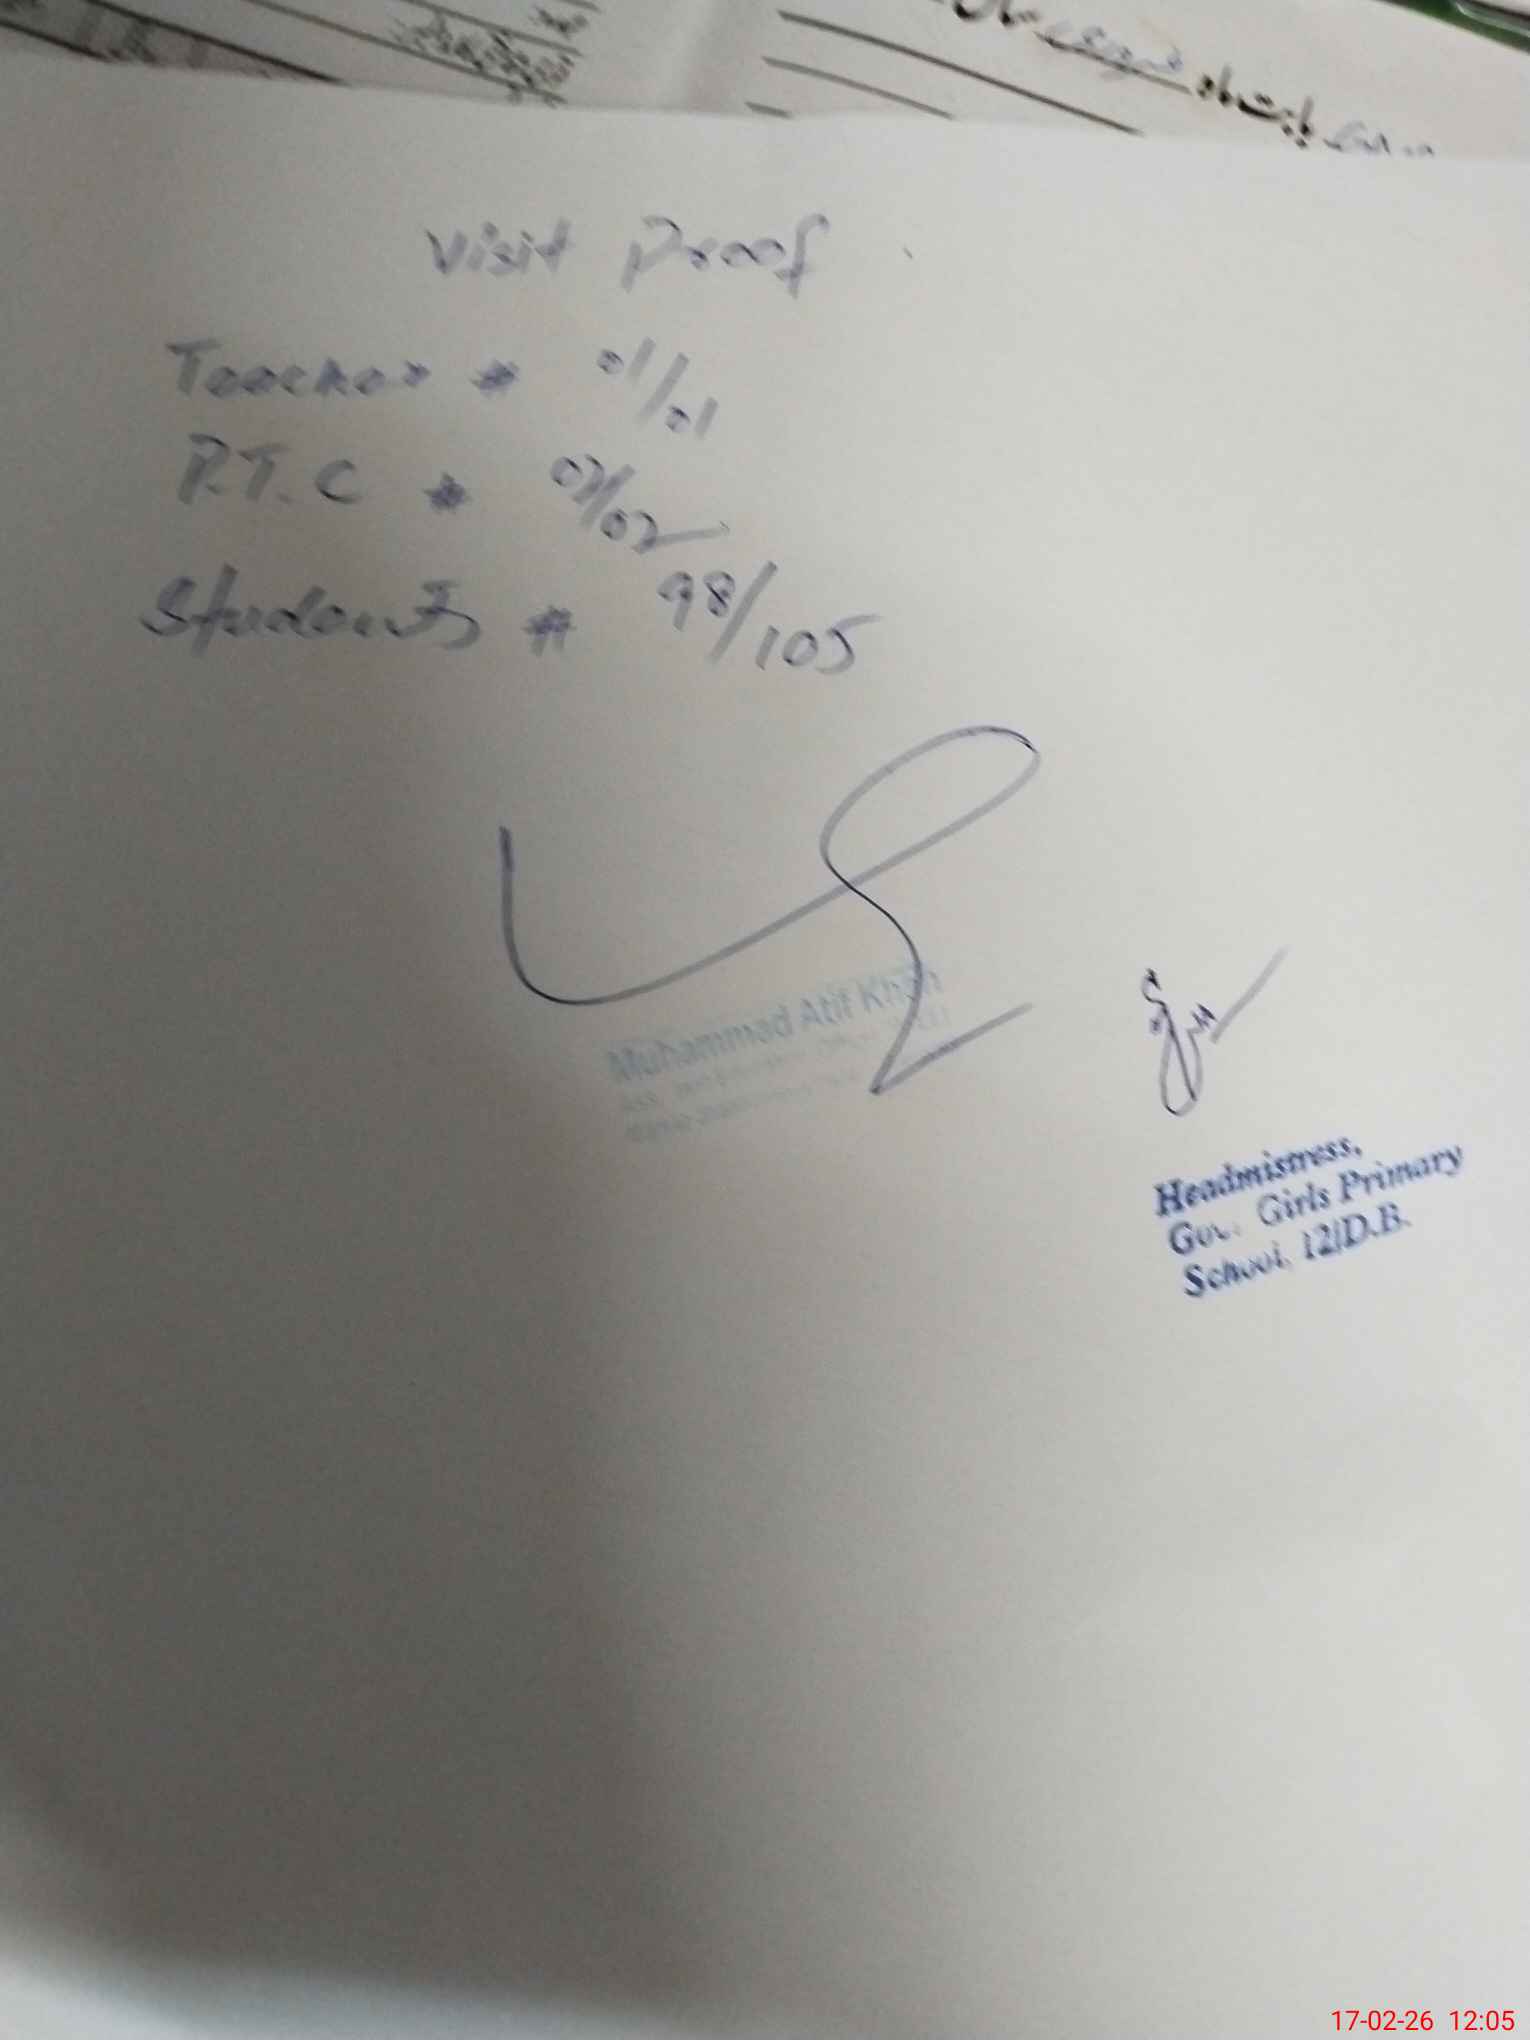 Visit Proof
Teacher # 01/01
P.T.C # 02/02
Students # 98/105
Muhammad Atif Khan
Headmistress,
Girls Primary
School, 12/D.B.
17-02-26 12:05